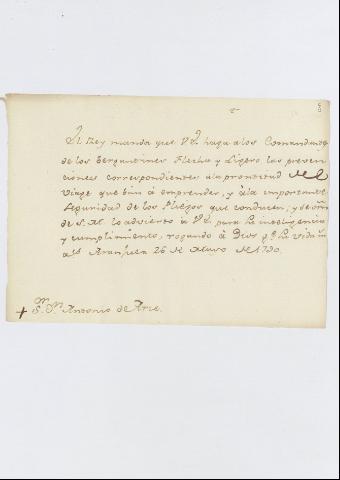 El Rey manda que V.S. haga a los Comandantes
de los Bergantines Flecha y Ligero las preven
ciones correspondientes a la prontitud del
viage que ban à emprender, y à la importante
seguridad de los Pliegos que conducen, y de orñ
de S. M. lo advierto à V.S. para su inteligencia
y cumplimiento, rogando à Dios gue. su vida ms.
as. Aranjuez 26 de Mayo de 1790.
+ Sor. Dn. Antonio de Arce.